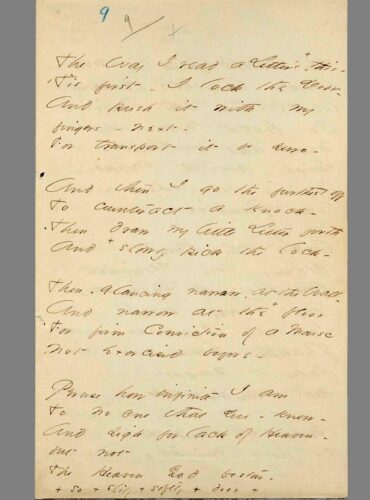 9 9
The Way I read a Letter's - this -
'Tis first - I lock the Door -
And push it with my
fingers - next -
For transport it be sure -
And then I go the furthest off
To counteract a knock -
Then draw my little Letter forth
And + slowly pick the lock -
Then - Glancing narrow, at the Wall -
And narrow at the + floor
For firm Conviction of a Mouse
Not Exorcised before -
Peruse how infinite I am
To no one that You - know -
And sigh for lack of Heaven -
but not
The Heaven God bestow -
+ so + slily + softly + door